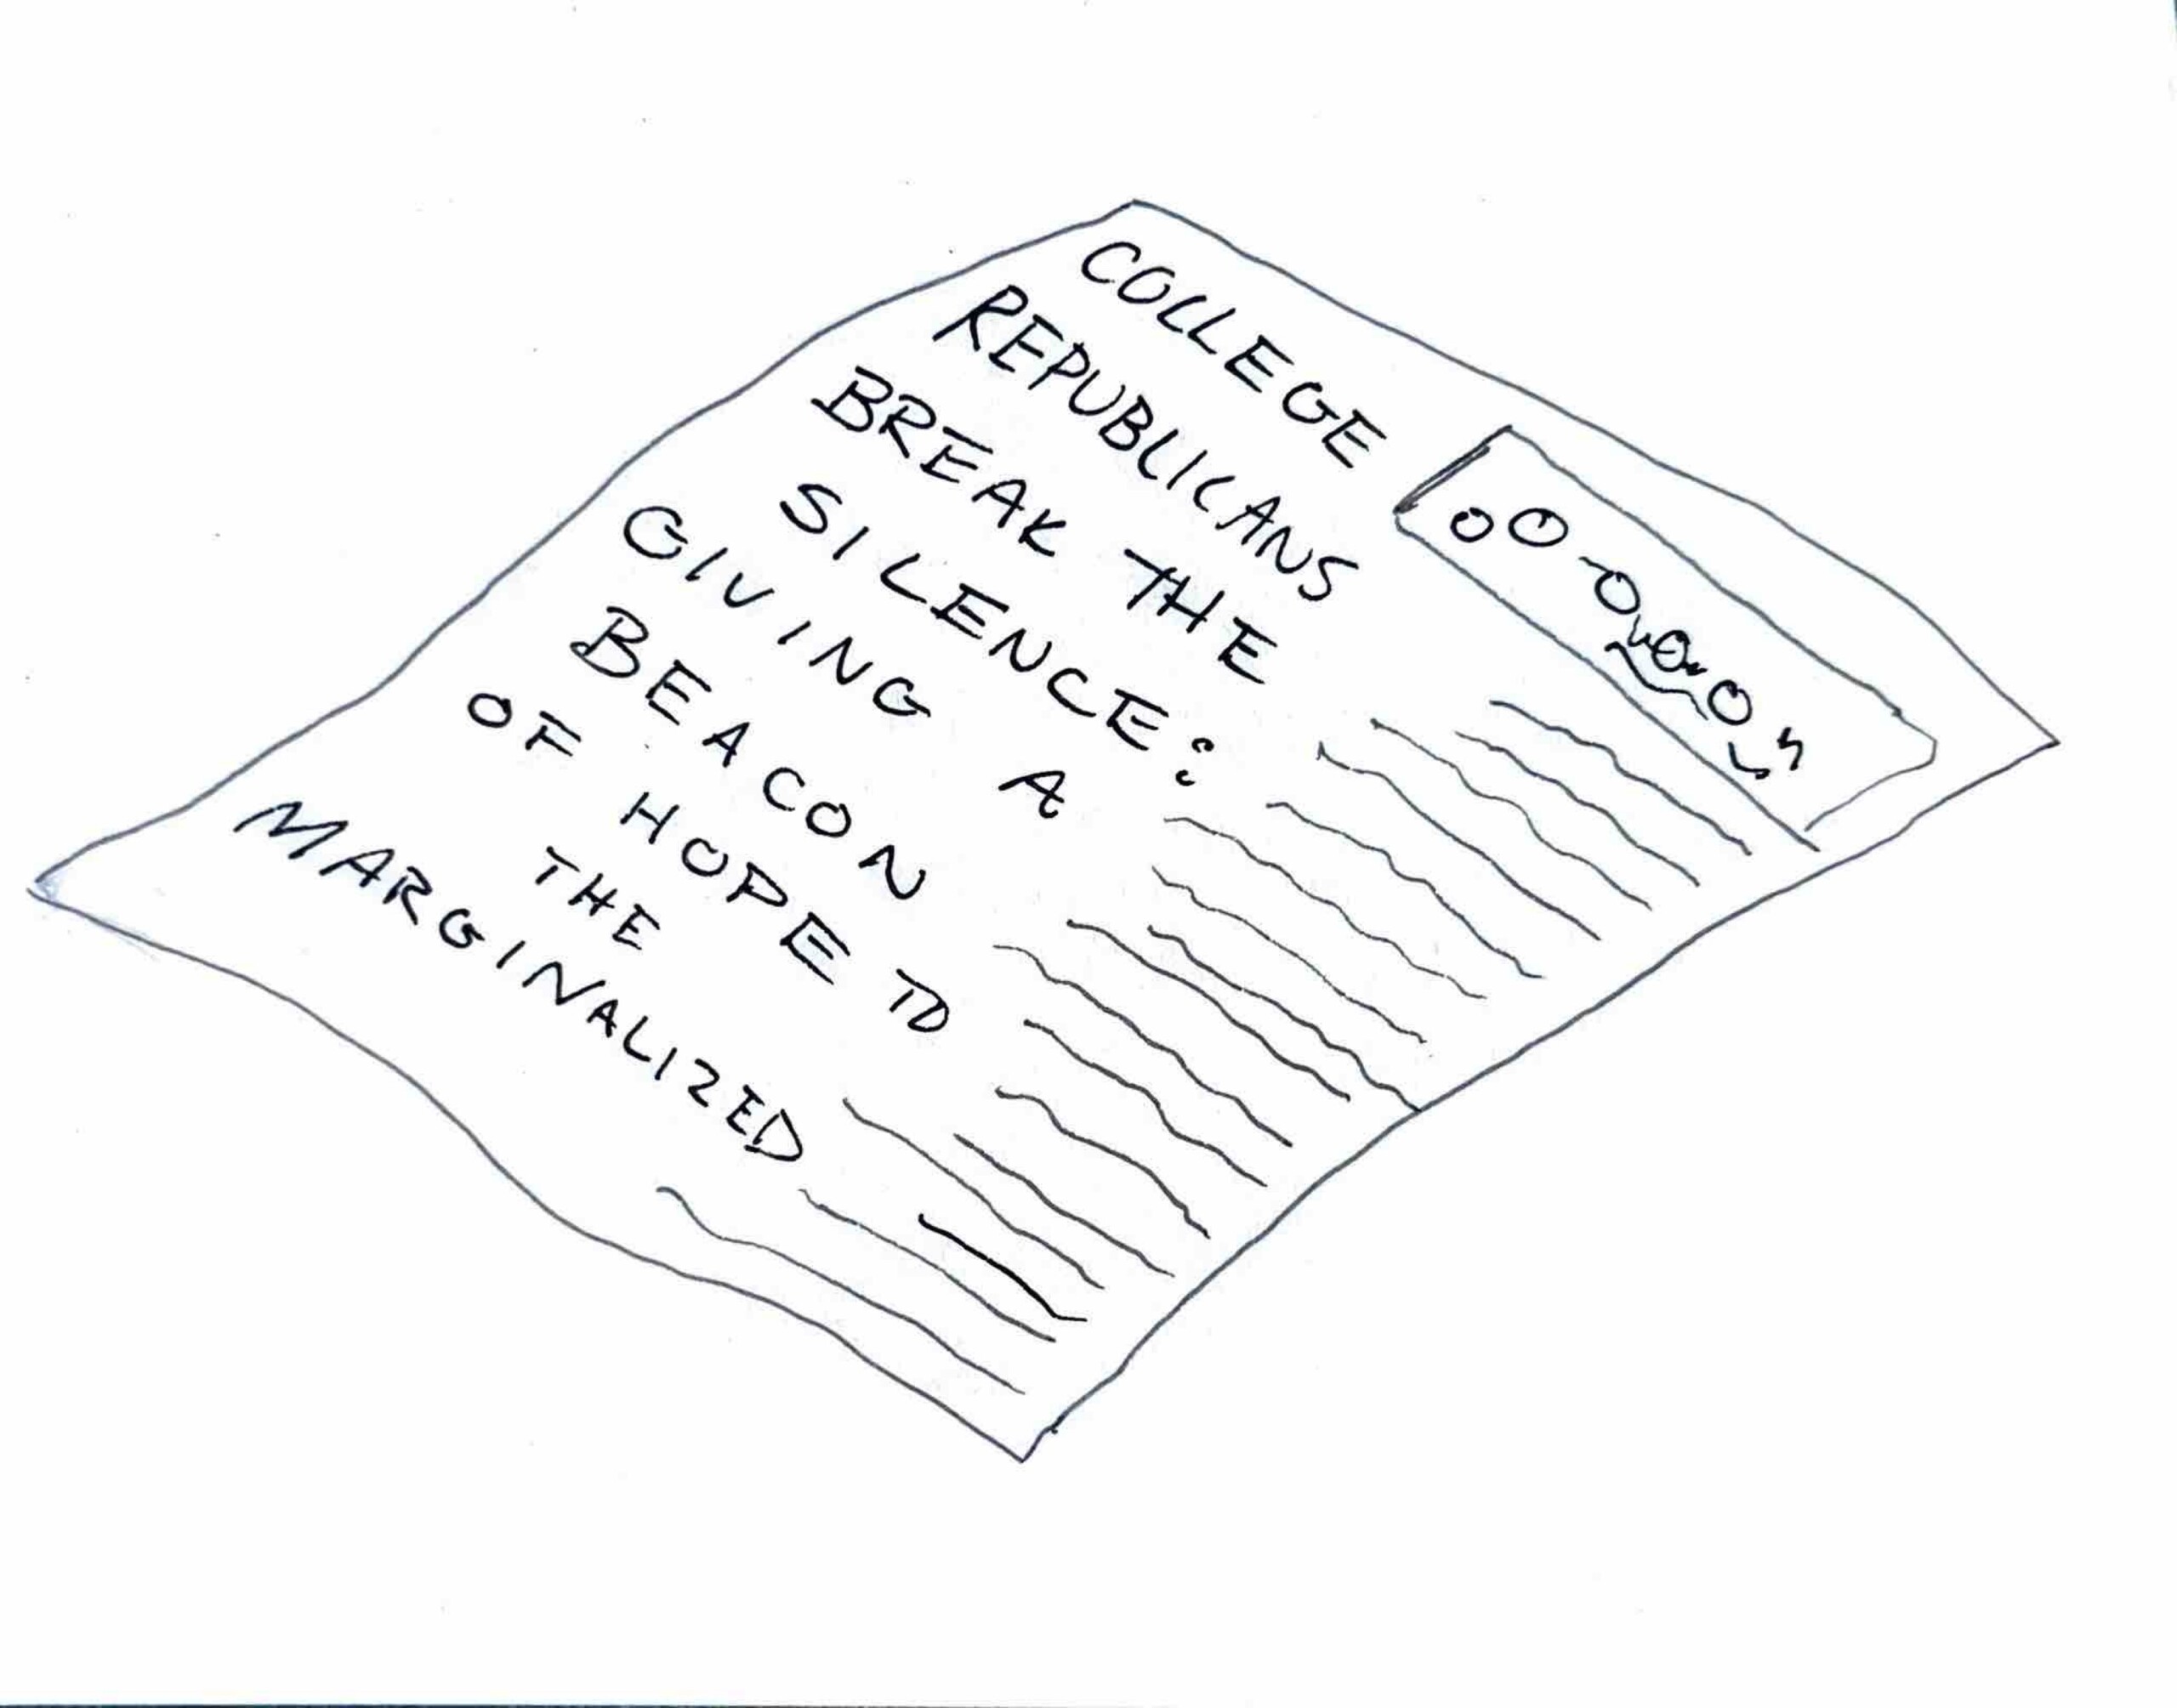 COLLEGE
REPUBLICANS
BREAK THE
SILENCE:
GIVING A
BEACON
OF HOPE TO
THE
MARGINALIZED